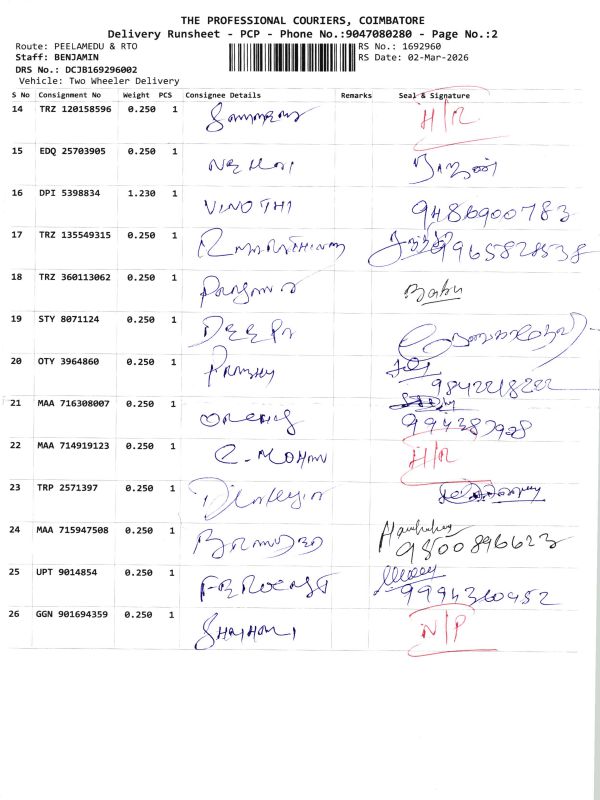 THE PROFESSIONAL COURIERS, COIMBATORE
Delivery Runsheet - PCP - Phone No.:9047080280 - Page No.:2
Route: PEELAMEDU & RTO RS No.: 1692960
Staff: BENJAMIN RS Date: 02-Mar-2026
DRS No.: DCJB169296002
Vehicle: Two Wheeler Delivery
S No Consignment No Weight PCS Consignee Details Remarks Seal & Signature
14 TRZ 120158596 0.250 1 H/R
15 EDQ 25703905 0.250 1
16 DPI 5398834 1.230 1 VINOTHI 9486900783
17 TRZ 135549315 0.250 1 9965828538
18 TRZ 360113062 0.250 1 Babu
19 STY 8071124 0.250 1 DEEPA
20 OTY 3964860 0.250 1 9842218222
21 MAA 716308007 0.250 1
22 MAA 714919123 0.250 1 C. MOHAN H/R
23 TRP 2571397 0.250 1
24 MAA 715947508 0.250 1 9500896623
25 UPT 9014854 0.250 1 9994360452
26 GGN 901694359 0.250 1 N/P